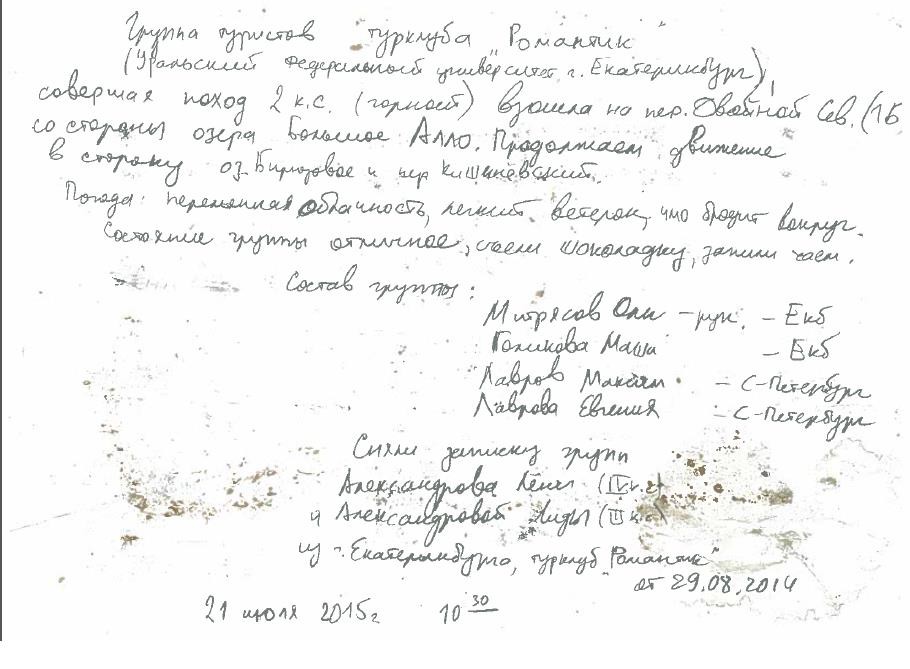 Группа туристов турклуба "Романтик"
(Уральский федеральный университет, г. Екатеринбург),
совершая поход 2 к.с. (горный) взошла на пер. Двойной Сев. (1Б
со стороны озера Большое Алло. Продолжаем движение
в сторону оз. Бирюзовое и пер Кишиневский.
Погода: переменная облачность, легкий ветерок, что бродит вокруг.
Состояние группы отличное, съели шоколадку, запили чаем.
Состав группы:
Митрясов Олег – рук. – Екб
Голикова Маша – Екб
Лавров Максим – С-Петербург
Лаврова Евгения – С-Петербург
Сняли записку групп
Александрова Лёни (IV к.с)
и Александровой Лиды (III к.с)
из г. Екатеринбурга, турклуб "Романтик"
от 29.08.2014
21 июля 2015г 10 30